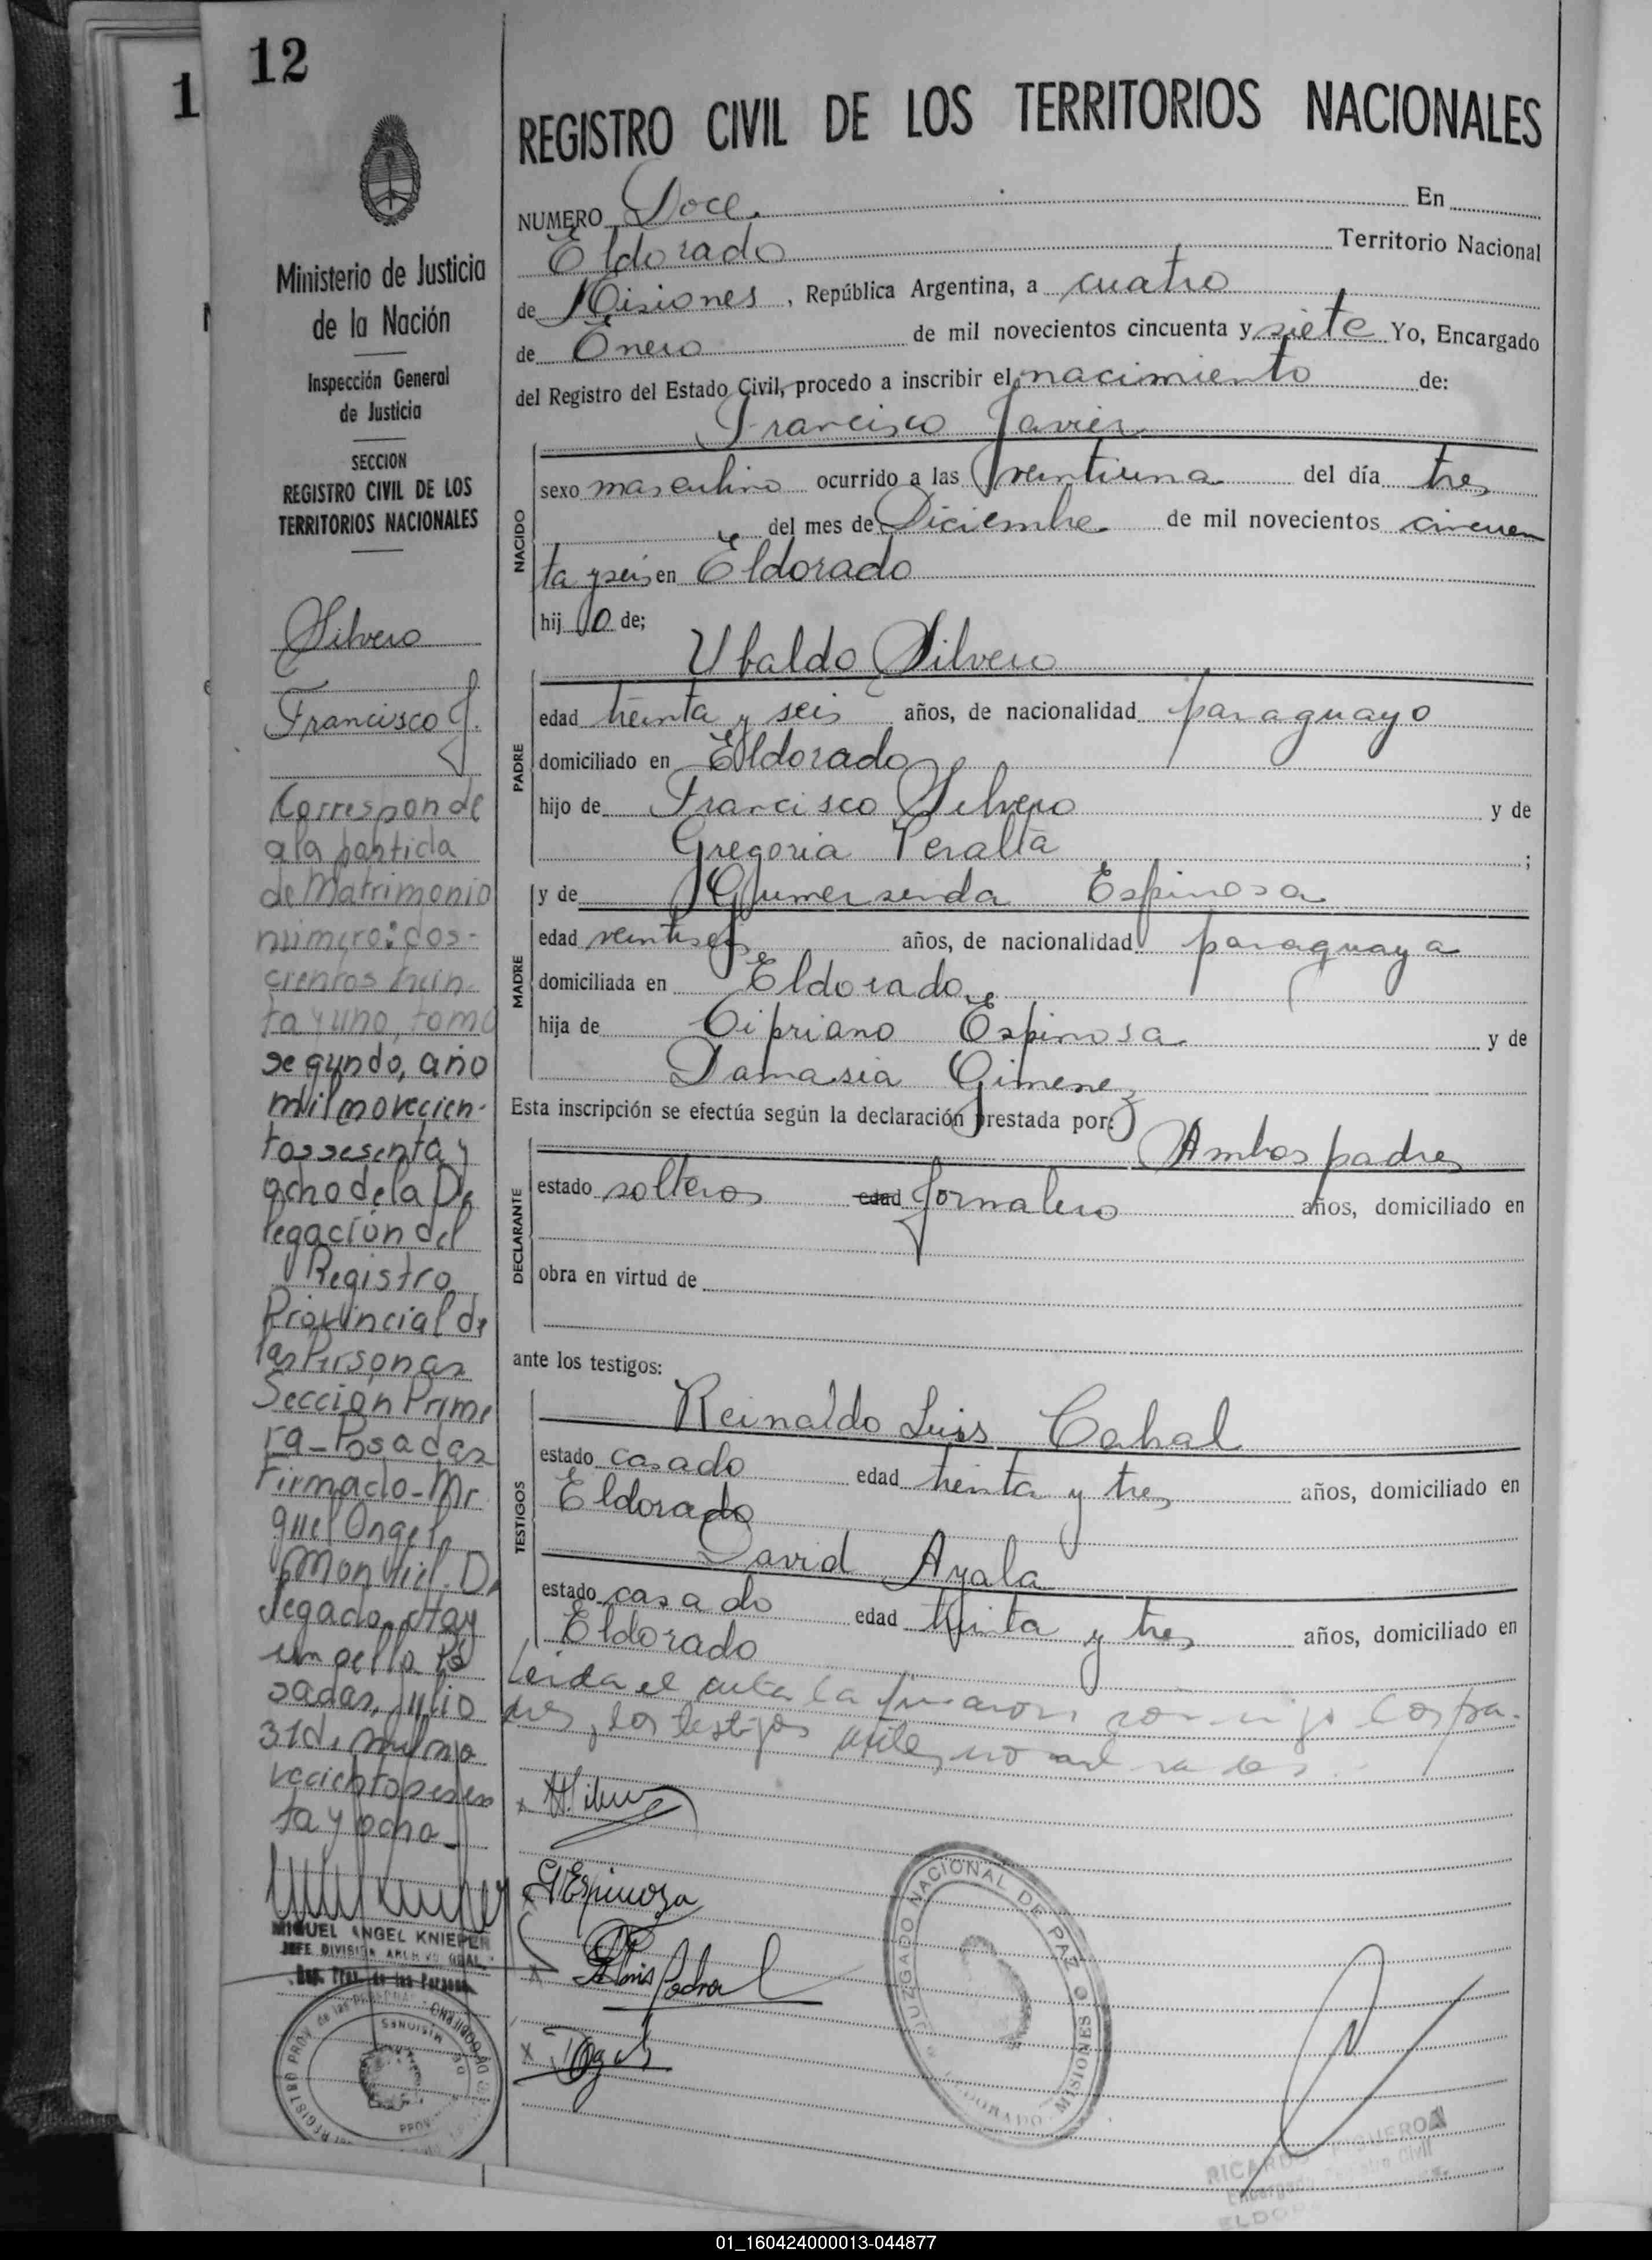 12
1
Ministerio de Justicia
de la Nación
Inspección General
de Justicia
SECCION
REGISTRO CIVIL DE LOS
TERRITORIOS NACIONALES
Silvero
Francisco J.
Corresponde
a la partida
de Matrimonio
número: dos-
cientos trein-
ta y uno, tomo
segundo, año
mil novecien-
tos sesenta y
ocho de la De
legación del
Registro
Provincial de
las Personas
Sección Prime
ra - Posadas
Firmado - Mi
guel Angel
De
legado. Hay
un sello Po
sadas, Julio
31 de mil no
vecientos sesen
ta y ocho
MIGUEL ANGEL KNIEPER
JEFE DIVISION ARCHIVO GRAL.
Reg. Prov. de las Personas
REGISTRO CIVIL DE LOS TERRITORIOS NACIONALES
NUMERO Doce. En
Eldorado Territorio Nacional
de Misiones, República Argentina, a cuatro
de Enero de mil novecientos cincuenta y siete Yo, Encargado
del Registro del Estado Civil, procedo a inscribir el nacimiento de:
Francisco Javier
NACIDO
sexo masculino ocurrido a las veintiuna del día tres
del mes de Diciembre de mil novecientos cincuen
ta y seis en Eldorado
hijo de;
Ubaldo Silvero
PADRE
edad treinta y seis años, de nacionalidad paraguayo
domiciliado en Eldorado
hijo de Francisco Silvero y de
Gregoria Peralta ;
y de Gumersenda Espinosa
MADRE
edad veintiseis años, de nacionalidad paraguaya
domiciliada en Eldorado
hija de Cipriano Espinosa y de
Damasia Gimenez
Esta inscripción se efectúa según la declaración prestada por:
Ambos padres
DECLARANTE
estado solteros edad Jornalero años, domiciliado en
obra en virtud de
ante los testigos:
Reinaldo Luis Cabral
TESTIGOS
estado casado edad treinta y tres años, domiciliado en
Eldorado
David Ayala
estado casado edad treinta y tres años, domiciliado en
Eldorado
Leida el acta la firmaron conmigo los pa-
dres, los testigos
G Espinoza
JUZGADO NACIONAL DE PAZ
ELDORADO - MISIONES
RICARDO FIGUEROA
Encargado Registro Civil
01_160424000013-044877